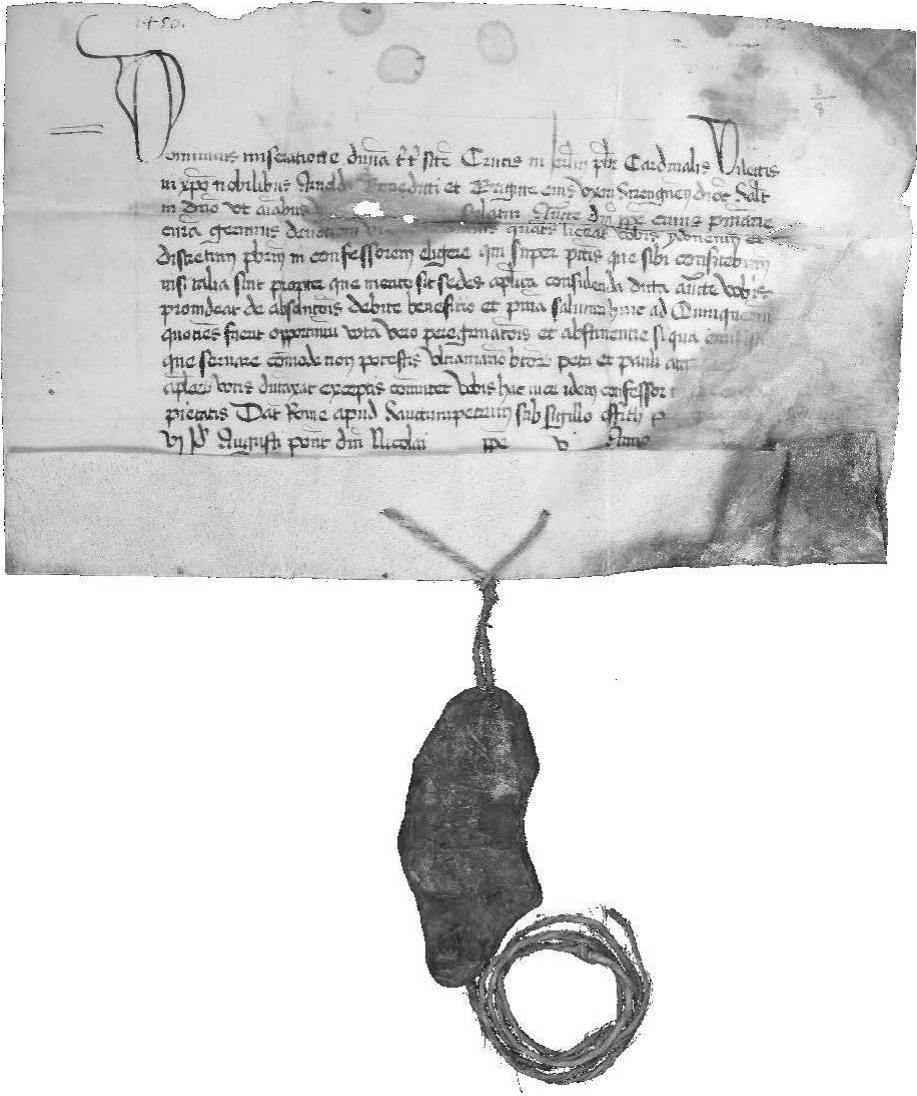 1450.
8
8
Dominicus miseratione diuina tt sctē Crucis in Jerlm pbr Cardinalis Dilectis
in xpo nobilibus Benedicti et eius vxori Strengneñ dioc Salt
in dño Vt aīabus salutem Aucte dñi pp cuius pmarie
curā gerimus deuotioni quatīs liceat vobis ydoneum et
discretum pbrm in confessorem eligere qui super pctis que sibi confitebimini
nisi talia sint propter que merito sit sedes aplica consulenda dicta aucte vobis
prouideat de absolutōis debite beneficio et pnia salutari hinc ad Quinquennium
quotiēs fuerit opportunū vota vero peregrinatōis et abstinentie si qua
que seruare cōmode non potestis vltramario btorū petri et pauli
aplorū votis dumtaxat exceptis cōmutet vobis hac vice idem confessor
pietatis Dat Rome apud Sanctumpetrum sub sigillo officij
vj kl Augusti pont dñi Nicolai ppe v Anno